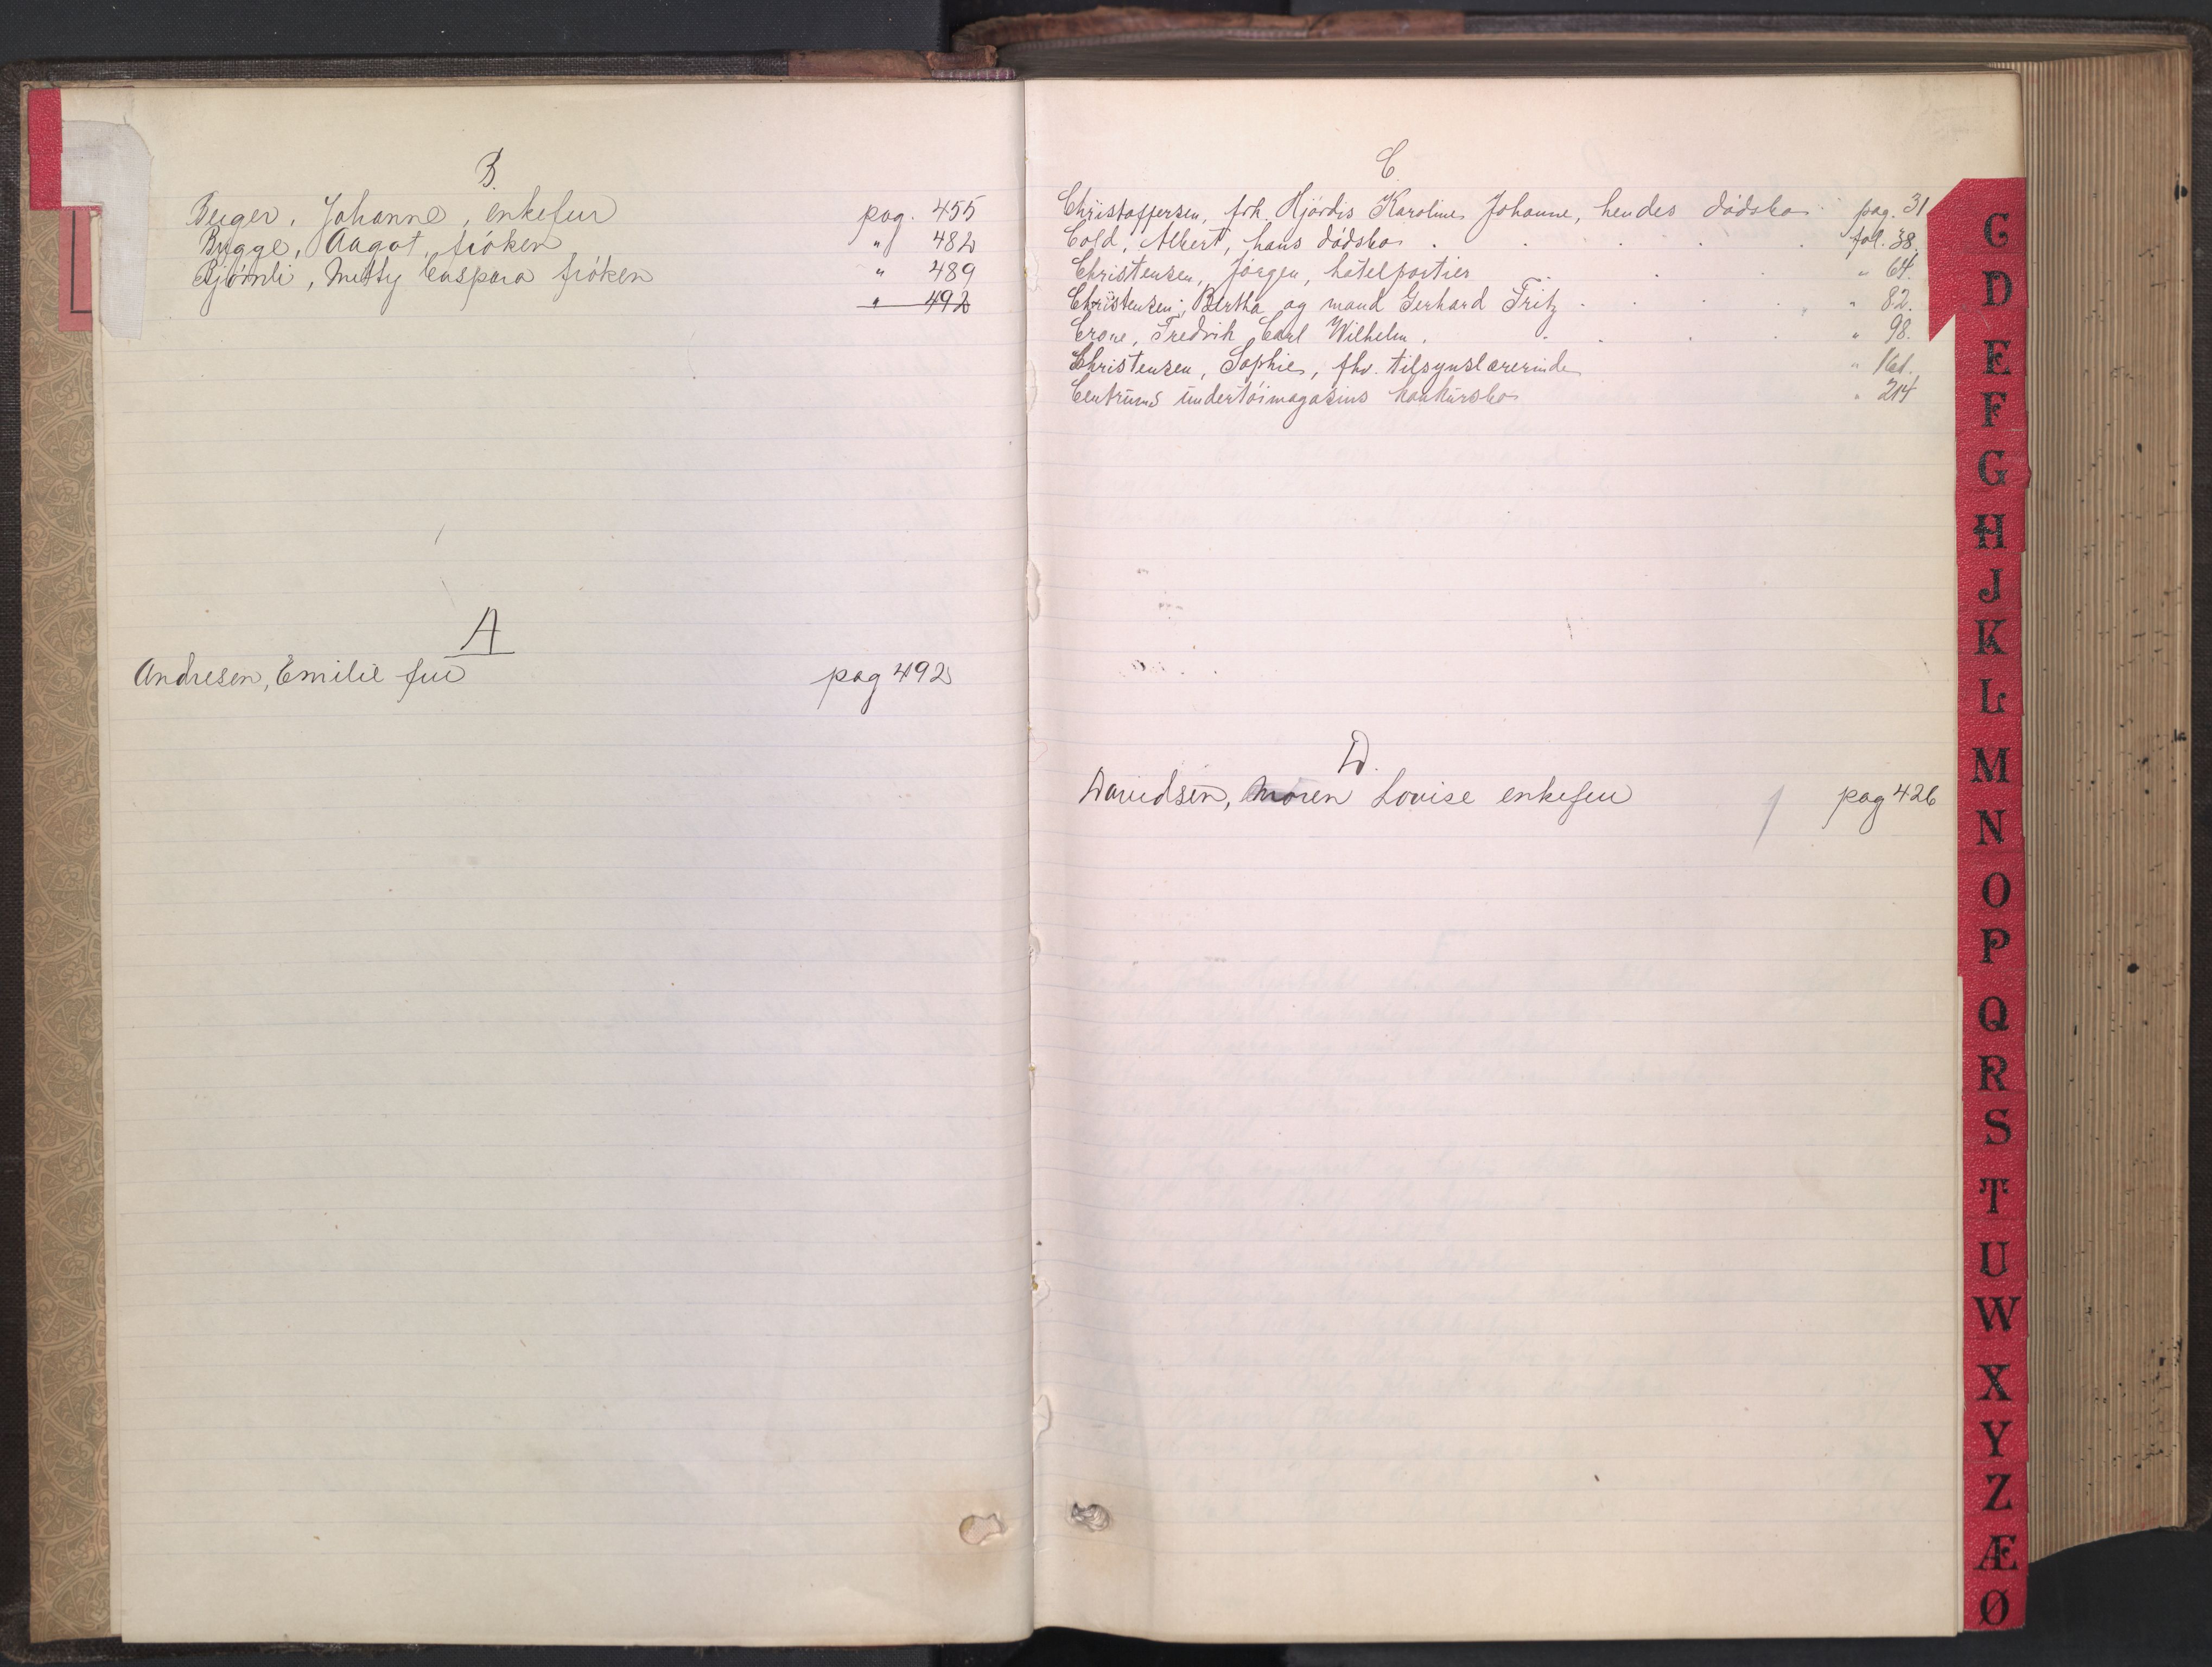 B.
Berger, Johanne, enkefru pag. 455
Bugge, Aagot, frøken " 482
Bjørnli, Metty Caspara frøken " 489
" 492
A
Andresen, Emilie fru pag 492
C.
Christoffersen, frk. Hjördis Karoline Johanne, hendes dödsbo pag. 31
Cold, Albert, hans dödsbo . . . . . fol. 38.
Christensen, Jörgen, hotelportier . . . " 64.
Christensen, Bertha og mand Gerhard Fritz . . . . " 82.
Crone, Fredrik Carl Wilhelm . . . . . " 98.
Christensen, Sophie, fhv. tilsynslærerinde " 161.
Centrums undertöimagasins konkursbo " 214
D.
Davidsen, Maren Lovise enkefru pag 426
G
D
E
F
G
H
J
K
L
M
N
O
P
Q
R
S
T
U
W
X
Y
Z
Æ
Ø